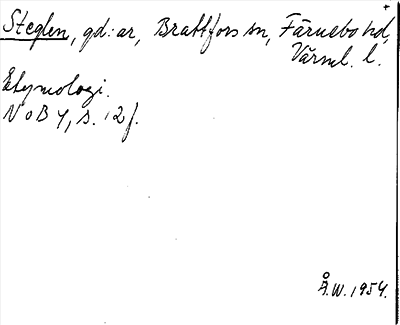 Steglen, gd:ar, Brattfors sn, Färnebo hd,
Värml. l.
Etymologi.
NoB 4, s. 12 f.
Å.W. 1954.